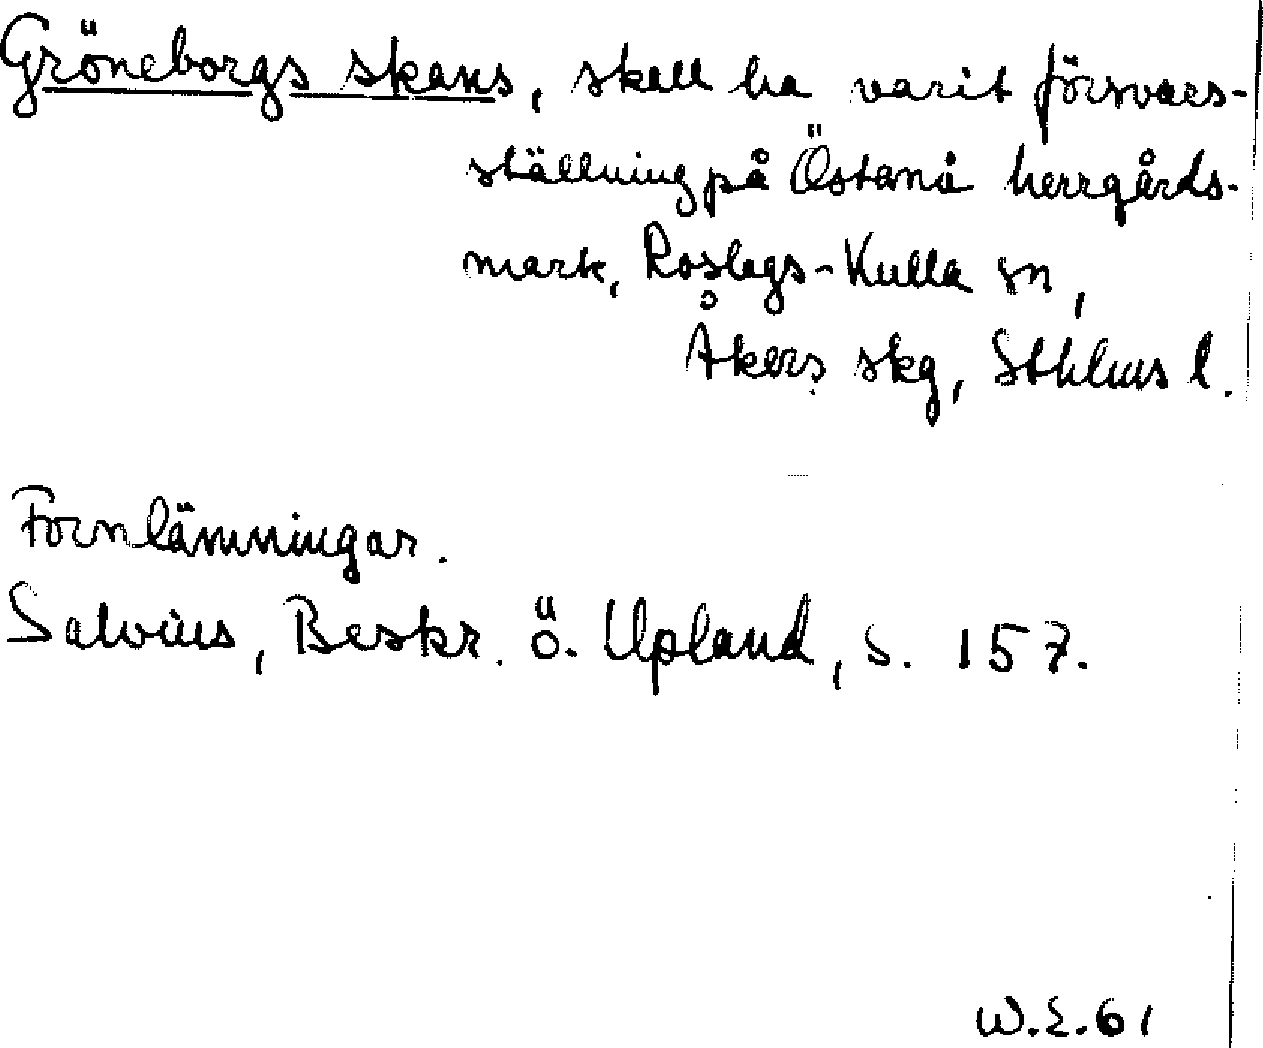 Gröneborgs skans, skall ha varit försvars-
ställning på Östanå herrgårds-
mark, Roslags-Kulla sn,
Åkers skg, Sthlms l.
Fornlämningar.
Salvius, Beskr. ö. Upland, s. 157.
W.E.61